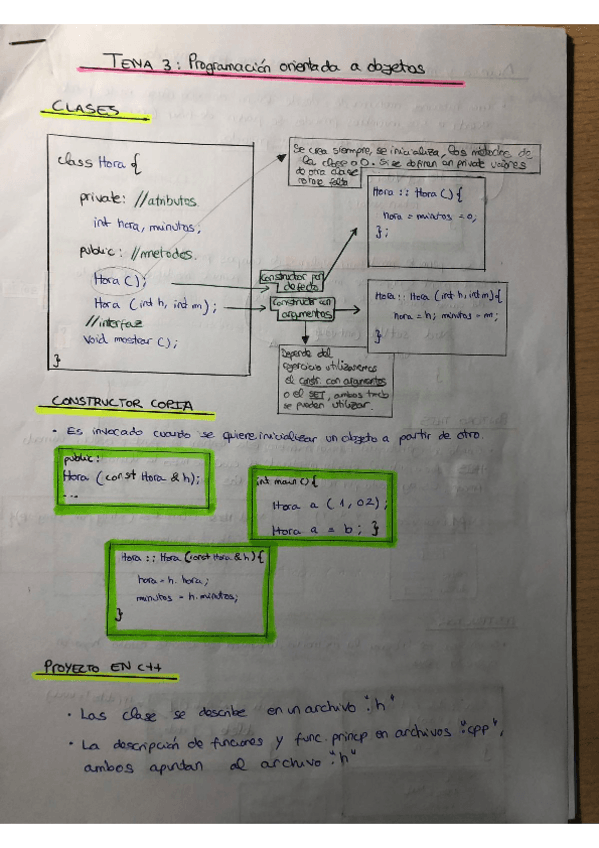 TEMA 3: Programación orientada a objetos
CLASES
class Hora {
private: //atributos
int hora, minutos;
public: //metodos
Hora ();
Hora (int h, int m);
//interfaz
void mostrar ();
}
Se crea siempre, se inicializa, los métodos de
la clase a 0. Si se definen en private valores
de otra clase
Hora :: Hora () {
hora = minutos = 0;
};
constructor por
defecto
constructor con
argumentos
Hora :: Hora (int h, int m) {
hora = h; minutos = m;
}
Depende del
ejercicio utilizaremos
el const. con argumentos
o el SET, ambos
se pueden utilizar.
CONSTRUCTOR COPIA
• Es invocado cuando se quiere inicializar un objeto a partir de otro.
public:
Hora (const Hora & h);
...
int main () {
Hora a (1,02);
Hora a = b; }
Hora :: Hora (const Hora & h) {
hora = h. hora;
minutos = h. minutos;
}
PROYECTO EN C++
• Las clase se describe en un archivo ".h"
• La descripción de funciones y func. princip en archivos ".cpp",
ambos apuntan al archivo ".h"